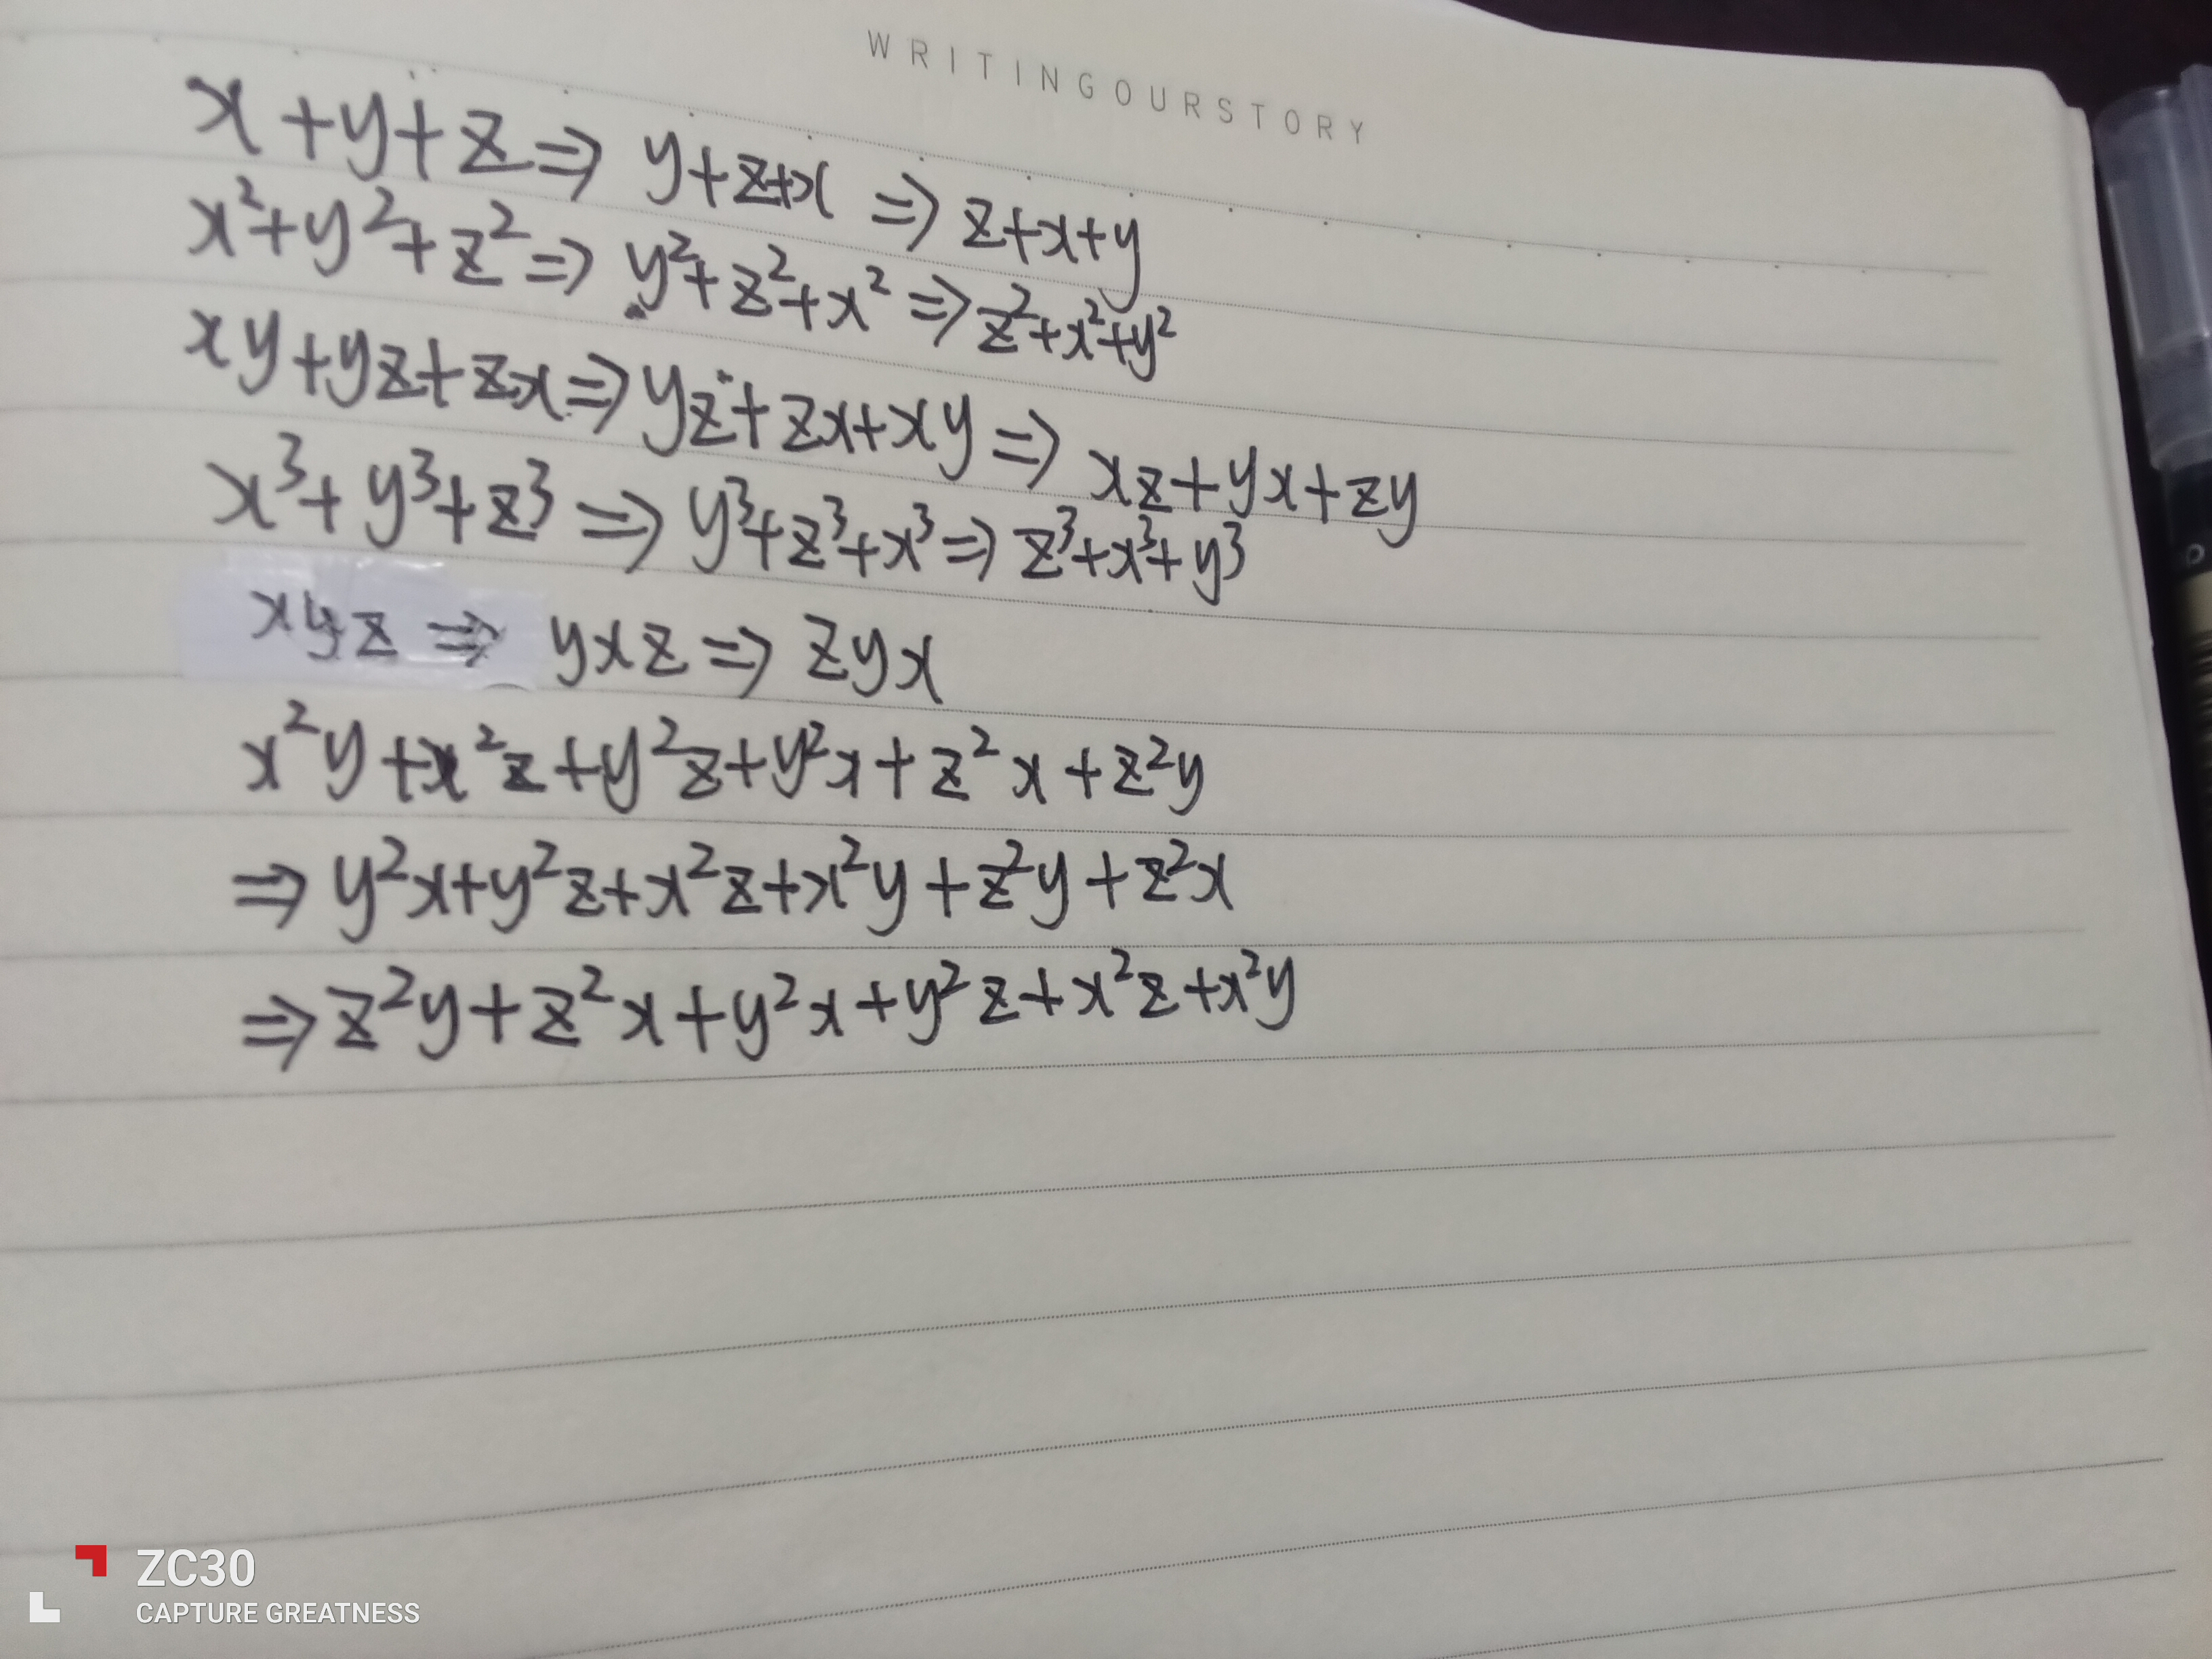 WRITINGOURSTORY
x+y+z⇒ y+z+x ⇒ z+x+y
x²+y²+z²⇒ y²+z²+x² ⇒ z²+x²+y²
xy+yz+zx⇒ yz+zx+xy ⇒ xz+yx+zy
x³+y³+z³ ⇒ y³+z³+x³ ⇒ z³+x³+y³
xyz ⇒ yxz ⇒ zyx
x²y+x²z+y²z+y²x+z²x+z²y
⇒ y²x+y²z+x²z+x²y+z²y+z²x
⇒ z²y+z²x+y²x+y²z+x²z+x²y
ZC30
CAPTURE GREATNESS